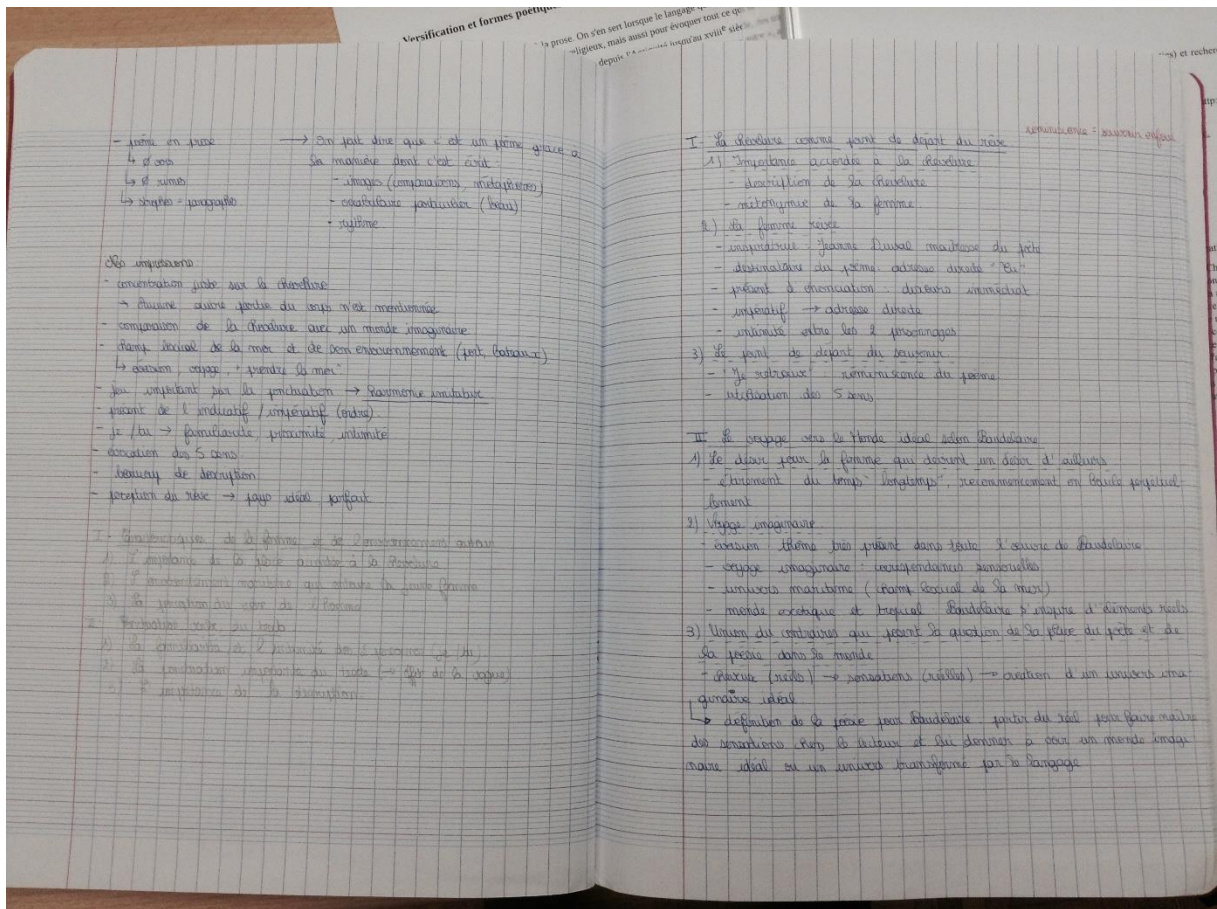 Versification et formes poétiqu
la prose. On s'en sert lorsque le langage
religieux, mais aussi pour évoquer tout ce qu
depuis l' jusqu'au xviiiᵉ siècle
) et recher
- poème en prose → On peut dire que c'est un poème grace a
↳ ∅ vers la manière dont c'est écrit.
↳ ∅ rimes - images (comparaisons, métaphores)
↳ strophes = paragraphes - vocabulaire particulier (beau)
- rythme
Mes impressions
- concentration juste sur la chevelure
→ Aucune autre partie du corps n'est mentionnée
- comparaison de la chevelure avec un monde imaginaire
- champ lexical de la mer et de son environnement (port, bateaux)
↳ évasion, voyage, "prendre la mer"
- jeu important sur la ponctuation → harmonie imitative
- présent de l'indicatif / impératif (ordre)
- je / tu → familiarité, proximité, intimité
- évocation des 5 sens
- beaucoup de description
- perception du rêve → pays idéal parfait
I - de la femme et de l'environnement autour
1) L' de la place à la chevelure
2) L' que la femme
3) La de l'homme
1) La et l' des 2 personnes (je/tu)
2) La ponctuation importante du texte (→ effet de la vague)
3) L'importance de la description
réminiscence = souvenir enfoui
I - La chevelure comme point de départ du rêve
1) Importance accordée a la chevelure
- description de la chevelure
- métonymie de la femme
2) La femme rêvée
- inspiratrice : Jeanne Duval maitresse du poète
- destinataire du poème : adresse directe "tu"
- présent d'énonciation : discours immédiat
- impératif → adresse directe
- intimité entre les 2 personnages
3) Le point de départ du souvenir
- "Je retrouve" : réminiscence du poème
- utilisation des 5 sens
II - Le voyage vers le Monde idéal selon Baudelaire
1) Le désir pour la femme qui devient un désir d'ailleurs
- étirement du temps "longtemps", recommencement en boucle perpétuel
lement
2) Voyage imaginaire
- évasion : thème très présent dans toute l'œuvre de Baudelaire
- voyage imaginaire : correspondances sensorielles
- univers maritime (champ lexical de la mer)
- monde exotique et tropical : Baudelaire s'inspire d'éléments réels
3) Union du contraires qui posent la question de la place du poète et de
la poésie dans le monde
- cheveux (réels) → sensations (réelles) → création d'un univers ima
ginaire idéal
↳ définition de la poésie pour Baudelaire : partir du réel pour faire naître
des sensations chez le lecteur et lui donner a voir un monde imagi
naire idéal ou un univers transformé par le langage